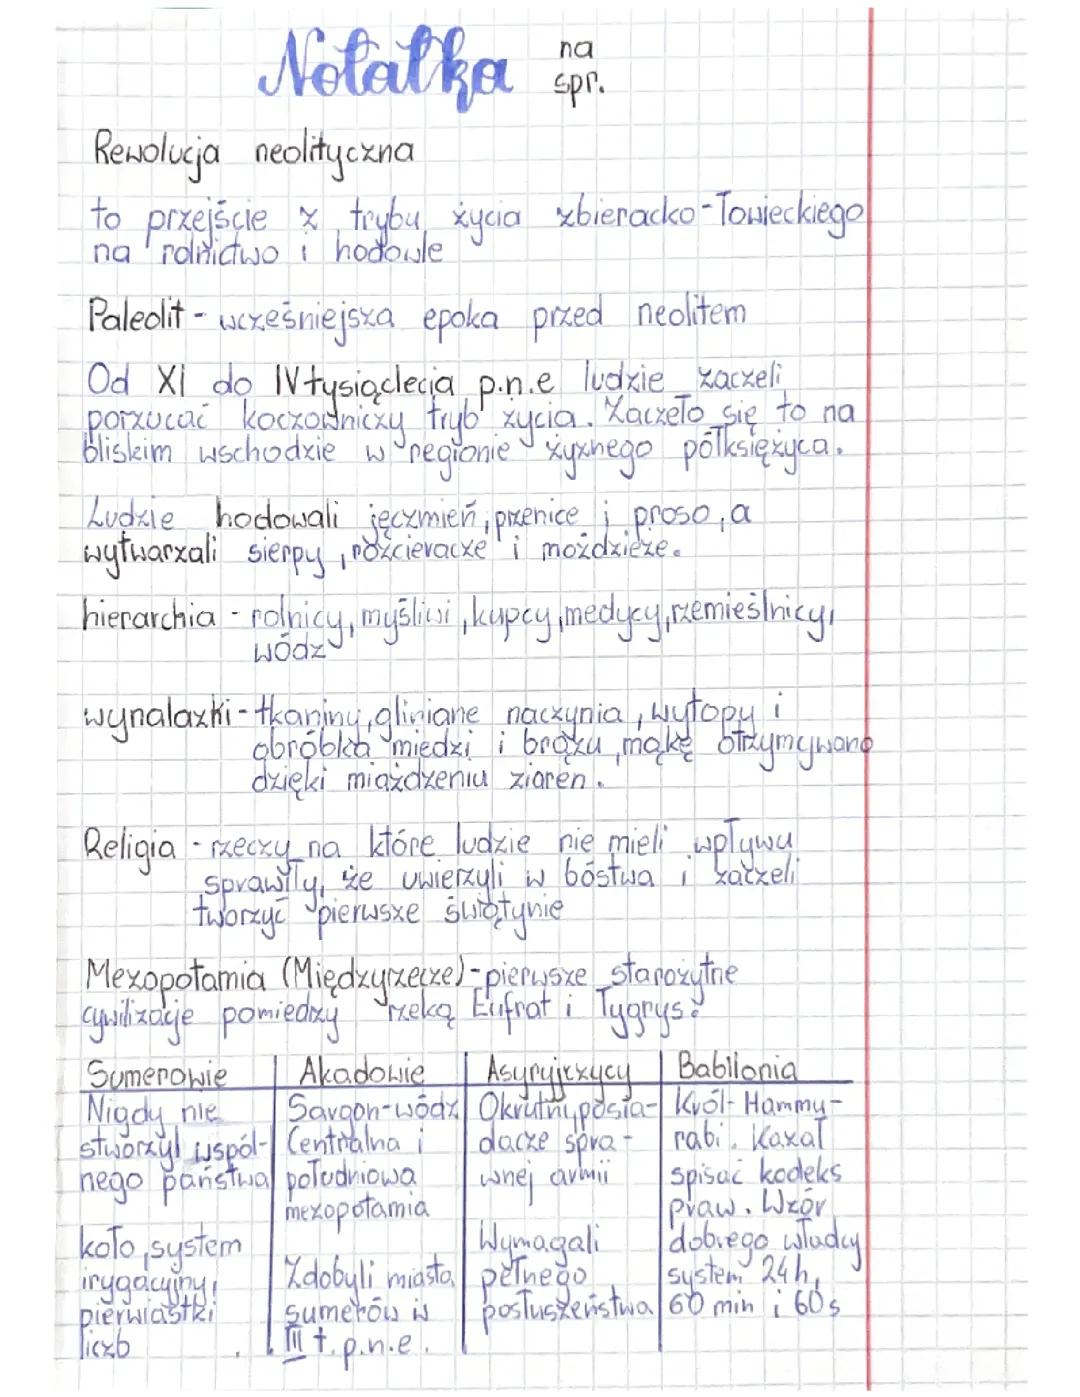 Notatka na spr.
Rewolucja neolityczna
to przejście z trybu życia zbieracko-łowieckiego
na rolnictwo i hodowle
Paleolit - wcześniejsza epoka przed neolitem
Od XI do IV tysiąclecia p.n.e ludzie zaczeli
porzucać koczowniczy tryb życia. Zaczeło się to na
bliskim wschodzie w regionie żyznego półksiężyca.
Ludzie hodowali jęczmień, pzenice i proso, a
wytwarzali sierpy, rozcieracze i moździeże.
hierarchia - rolnicy, myśliwi, kupcy, medycy, rzemieślnicy,
wódz
wynalazki - tkaniny, gliniane naczynia, wytopy i
obróbka miedzi i brązu, mąkę otrzymywano
dzięki miażdzeniu ziaren.
Religia - rzeczy na które ludzie nie mieli wpływu
sprawiły, że uwierzyli w bóstwa i zaczeli
tworzyć pierwsze świątynie
Mezopotamia (Międzyrzecze) - pierwsze starożytne
cywilizacje pomiedzy rzeką Eufrat i Tygrys.
Sumerowie
Nigdy nie
stworzyl wspól-
nego państwa
koło, system
irygacyjny,
pierwiastki
liczb.
Akadowie
Sargon-wódz
Centralna i
południowa
mezopotamia
Zdobyli miasta
sumerów w
III t. p.n.e.
Asyryjczycy
Okrutni, posia-
dacze spra-
wnej armii
Wymagali
pełnego
posłuszeństwa
Babilonia
Król- Hammu-
rabi. Kazał
spisać kodeks
praw. Wzór
dobrego władcy
system 24h,
60 min i 60s